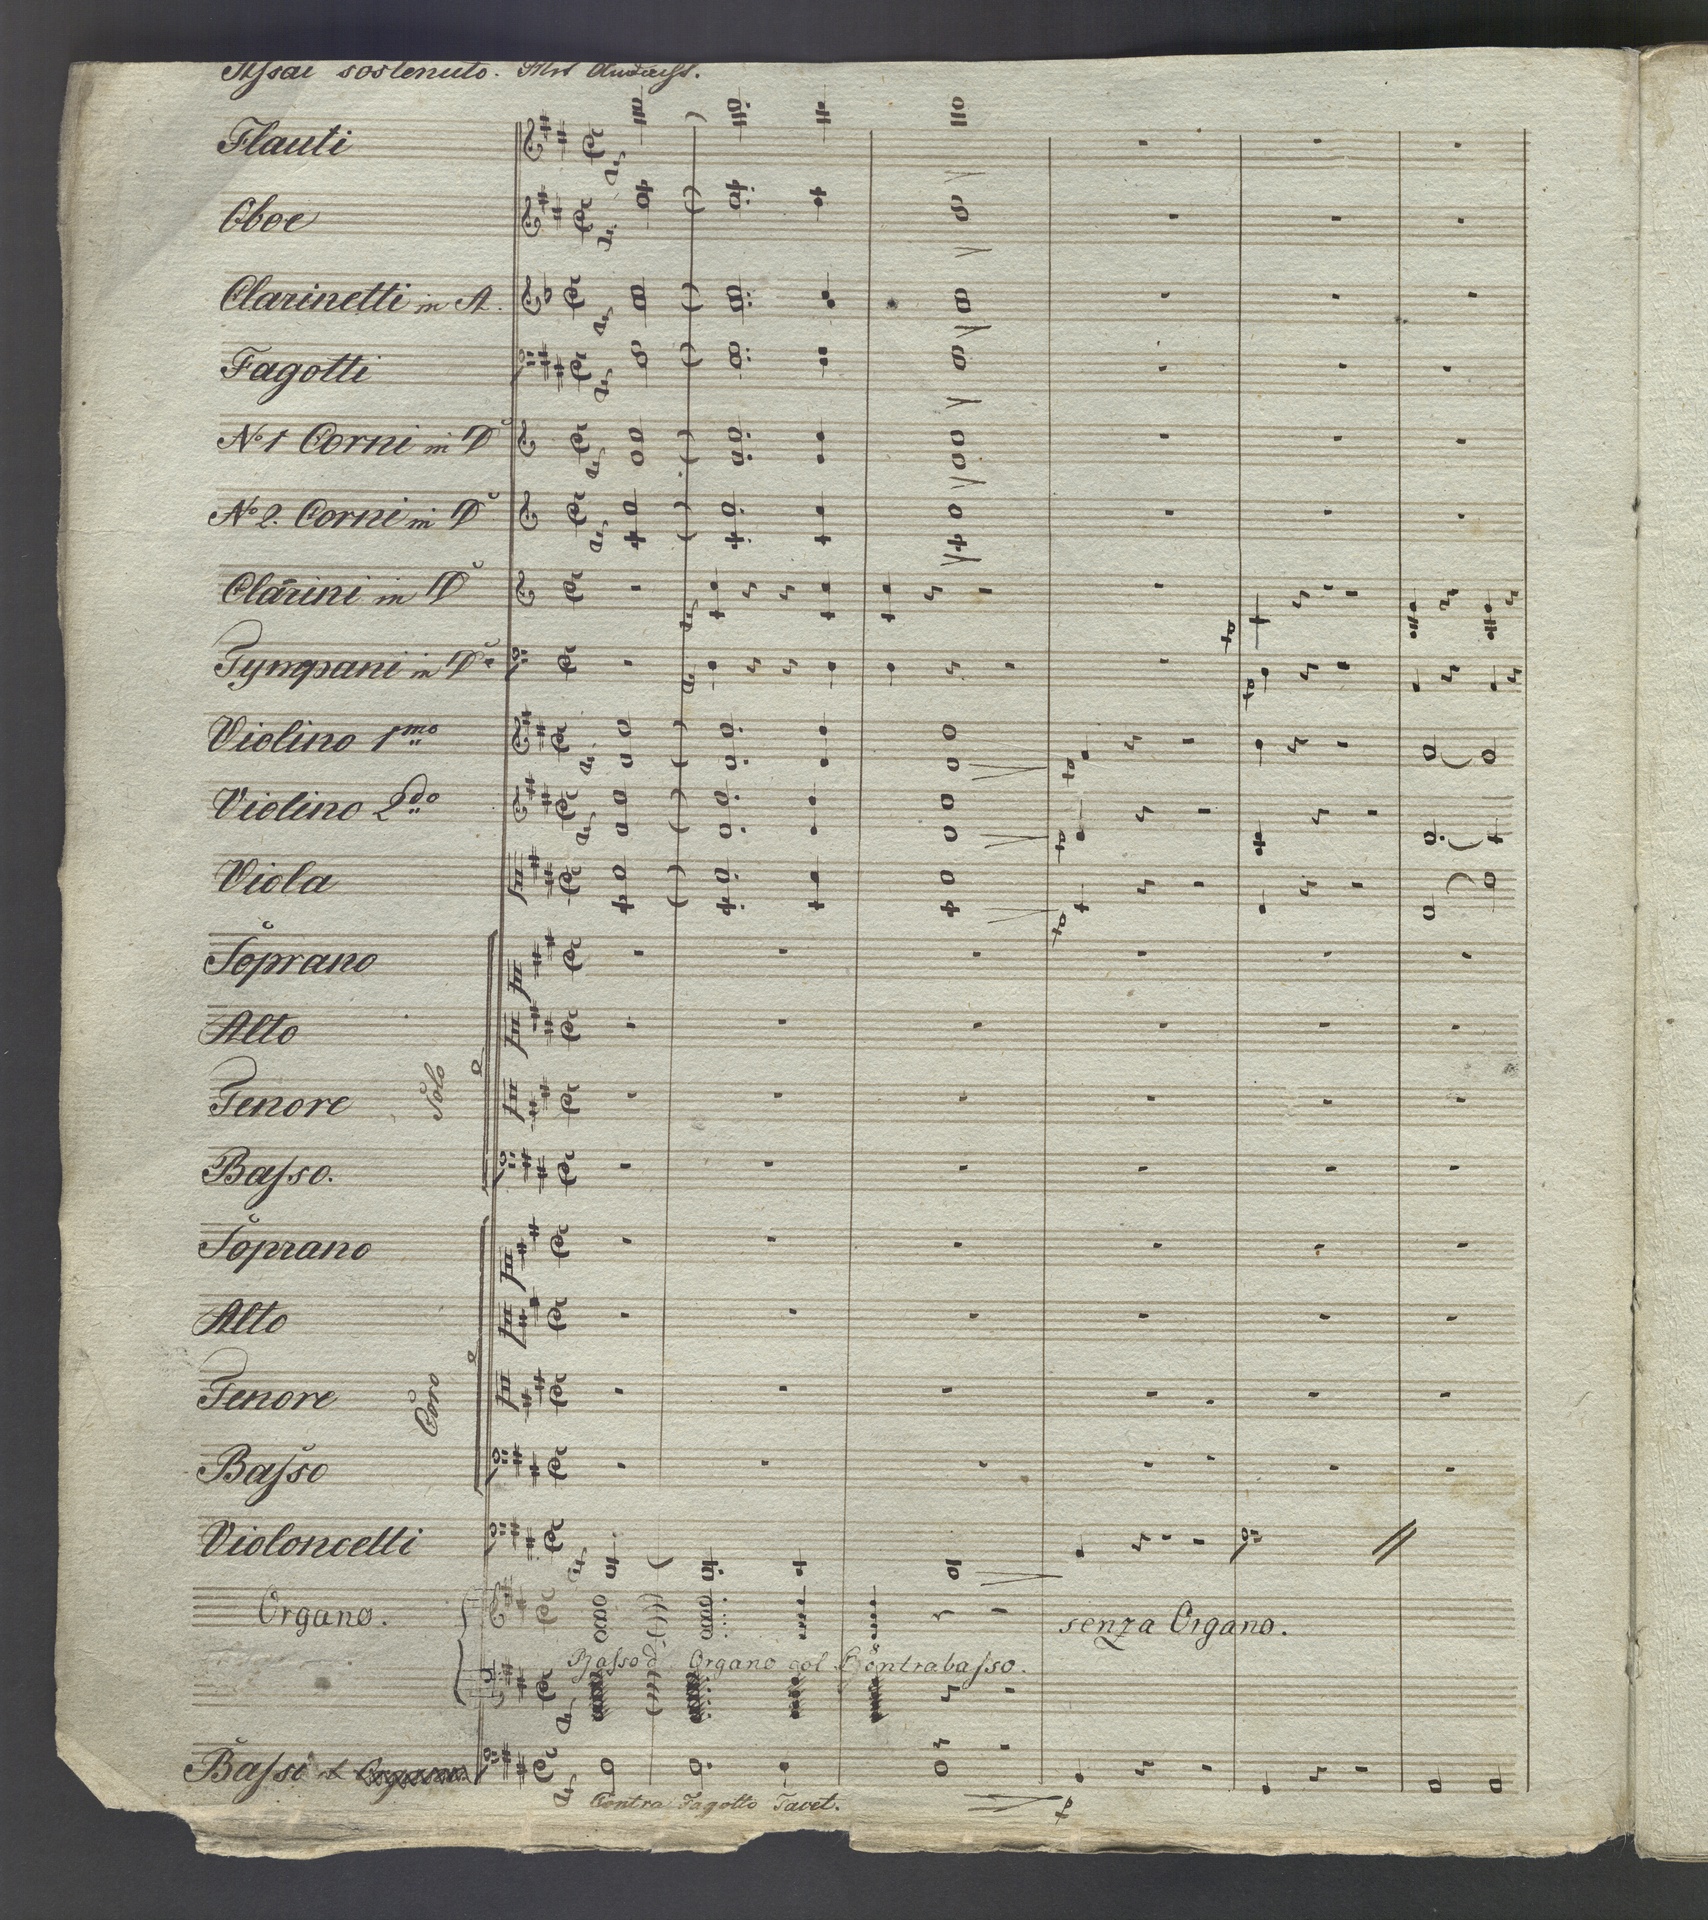 Assai sostenuto. Mit Andacht.
Flauti
Oboe
Clarinetti in A.
Fagotti
No 1 Corni in D
No 2. Corni in D
Clarini in D
Tympani in D
Violino 1mo
Violino 2do
Viola
Soprano
Alto
Tenore
Solo
Baſso.
Soprano
Alto
Tenore
Coro
Baſso
Violoncelli
Organo.
senza Organo.
Baſso d Organo col Contrabaſso.
Baſsi
Contra Fagotto Tacet.